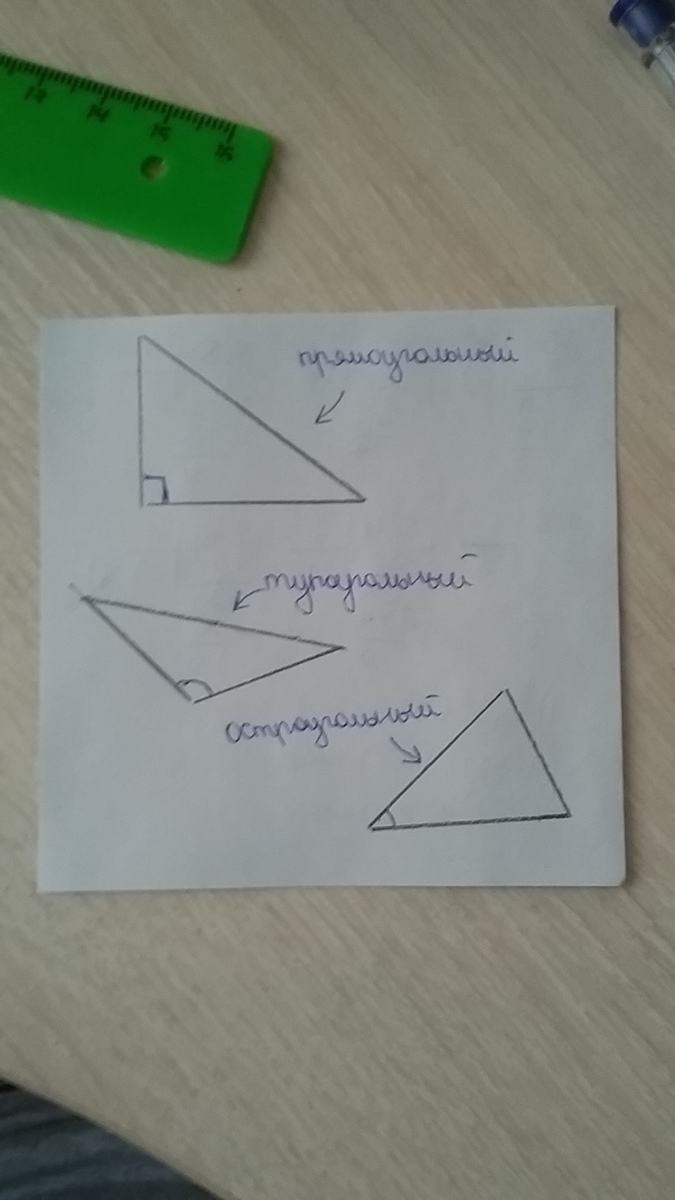 13 14 15 16
прямоугольный
тупоугольный
остроугольный